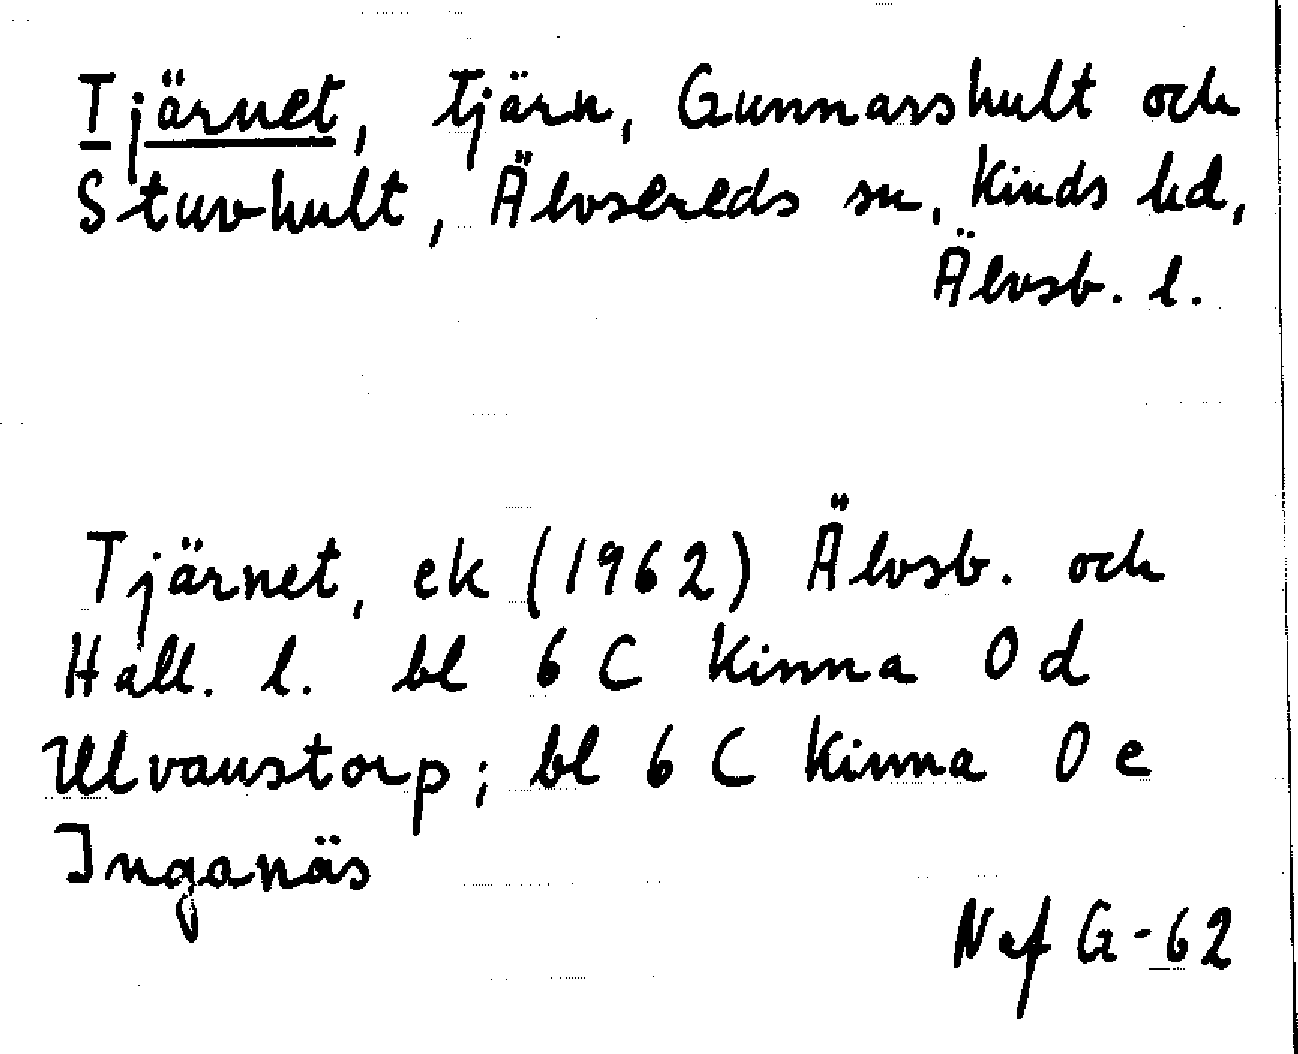 Tjärnet, tjärn, Gunnarshult och
Stuvhult, Älvsereds sn, Kinds hd,
Älvsb. l.
Tjärnet, ek (1962) Älvsb. och
Hall. l. bl 6 C Kinna 0 d
Ulvanstorp; bl 6 C Kinna 0 e
Inganäs
Nef G-62